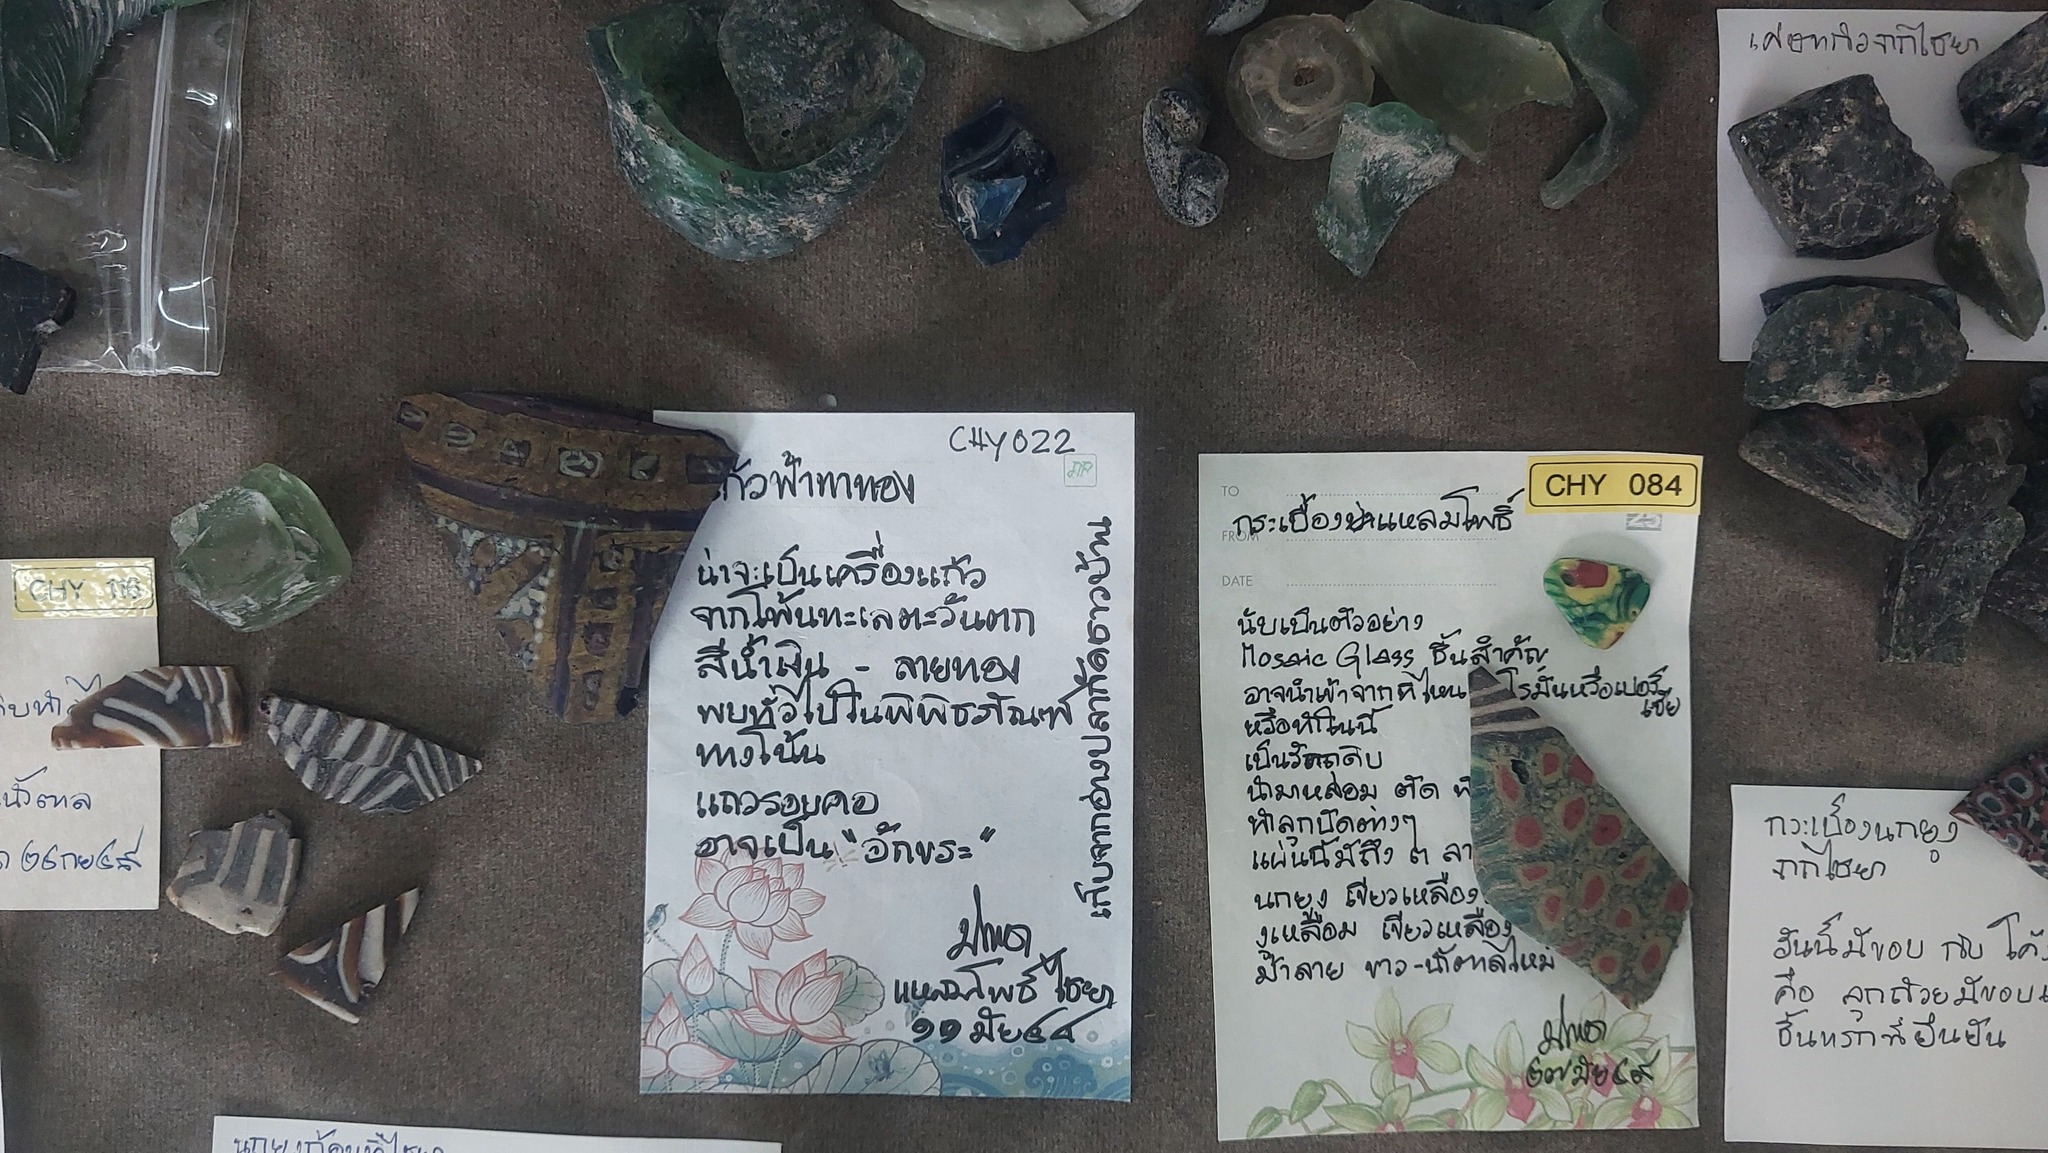 เศษแก้วจากไชยา
CHY 022
แก้วฟ้าทาทอง
น่าจะเป็นเครื่องแก้ว
จากโพ้นทะเลตะวันตก
สีน้ำเงิน - ลายทอง
พบทั่วไปในพิพิธภัณฑ์
ทางโน้น
แถวรอบคอ
อาจเป็น "อักขระ"
แหลมโพธิ์ ไชยา
๑๑ มีย ๕๔
เก็บจากอ่างปลากัดชาวบ้าน
CHY 084
TO
FROM
DATE
กระเบื้อง แหลมโพธิ์
นับเป็นตัวอย่าง
Mosaic Glass ชิ้นสำคัญ
อาจนำเข้าจากที่ไหน โรมันหรือเปอร์เซีย
หรือทำในนี้
เป็นวัตถุดิบ
นำมาหลอม ตัด
ทำลูกปัดต่างๆ
แผ่นนี้มีถึง ๓ ลา
นกยูง เขียวเหลือง
งูเหลือม เขียวเหลือง
ม้าลาย ขาว-น้ำตาลไหม้
๒๗ มีย ๕๙
CHY
น้ำตาล
๒๔ กย ๕๘
กระเบื้องนกยูง
จากไชยา
อันนี้มีขอบ กับ โค้ง
คือ ลูกถ้วยมีขอบ
ชิ้นแรกที่ยืนยัน